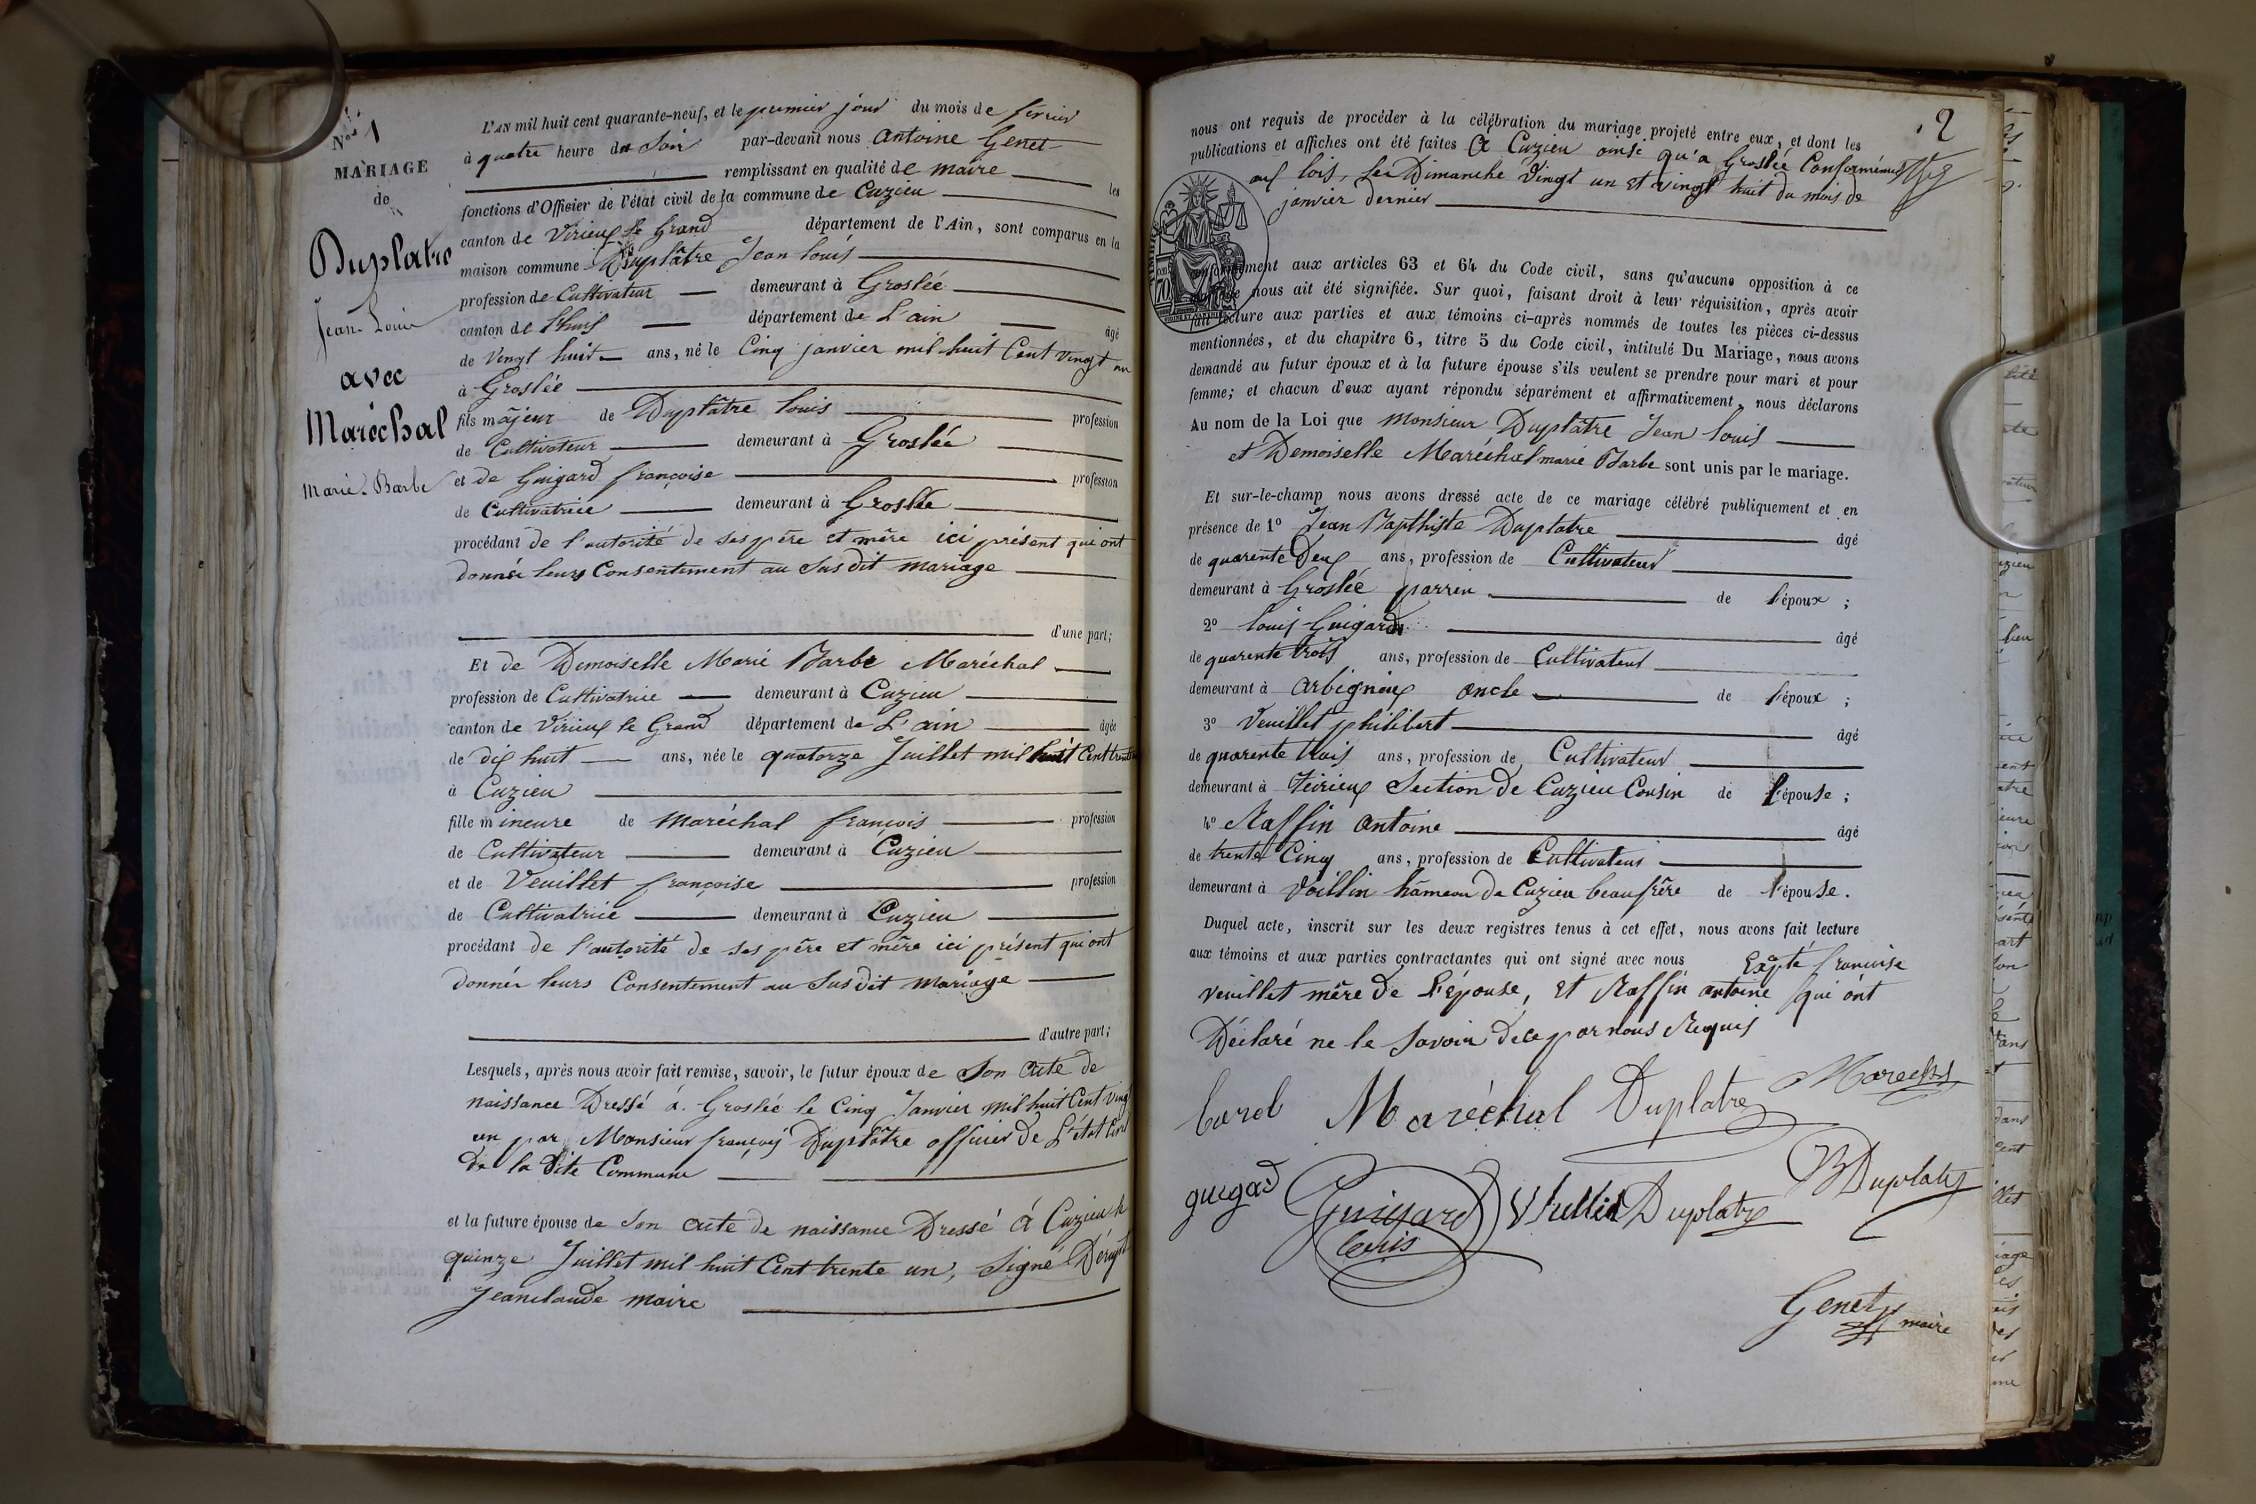 N° 1
MARIAGE
de
Duplatre
Jean-Louis
avec
Maréchal
Marie-Barbe
L'AN mil huit cent quarante-neuf, et le premier jour du mois de février
à quatre heure du Soir par-devant nous Antoine Genet
remplissant en qualité de maire les
fonctions d'Officier de l'état civil de la commune de Cuzieu
canton de Virieux le Grand département de l'Ain, sont comparus en la
maison commune Duplâtre Jean Louis
profession de Cultivateur demeurant à Groslée
canton de l'huis département de L'ain âgé
de Vingt huit ans, né le Cinq janvier mil huit Cent vingt un
à Groslée
fils majeur de Duplâtre Louis profession
de Cultivateur demeurant à Groslée
et de Guigard françoise profession
de Cultivatrice demeurant à Groslée
procédant de l'autorité de ses père et mère ici présent qui ont
donnée leurs Consentement au Sus dit mariage
d'une part;
Et de Demoiselle Marie Barbe Maréchal
profession de Cultivatrice demeurant à Cuzieu
canton de Virieux le Grand département de L'ain âgée
de dix huit ans, née le quatorze Juillet mil huit Cent trente
à Cuzieu
fille mineure de Maréchal françois profession
de Cultivateur demeurant à Cuzieu
et de Veuillet françoise profession
de Cultivatrice demeurant à Cuzieu
procédant de l'autorité de ses père et mère ici présent qui ont
donnée leurs Consentement au Sus dit mariage
d'autre part;
Lesquels, après nous avoir fait remise, savoir, le futur époux de Son acte de
naissance Dressé à Groslée le Cinq Janvier mil huit Cent Vingt
un par Monsieur françois Duplâtre officier de L'état Civil
de la Dite Commune
et la future épouse de Son acte de naissance Dressé à Cuzieu le
quinze Juillet mil huit Cent trente un, Signé
Jeanclaude maire
2
nous ont requis de procéder à la célébration du mariage projeté entre eux, et dont les
publications et affiches ont été faites à Cuzieu ainsi qu'a Groslée Conformément
aux lois, les Dimanche Vingt un et vingt huit du mois de
janvier dernier
conformément aux articles 63 et 64 du Code civil, sans qu'aucune opposition à ce
mariage nous ait été signifiée. Sur quoi, faisant droit à leur réquisition, après avoir
fait lecture aux parties et aux témoins ci-après nommés de toutes les pièces ci-dessus
mentionnées, et du chapitre 6, titre 5 du Code civil, intitulé Du Mariage, nous avons
demandé au futur époux et à la future épouse s'ils veulent se prendre pour mari et pour
femme; et chacun d'eux ayant répondu séparément et affirmativement, nous déclarons
Au nom de la Loi que Monsieur Duplâtre Jean Louis
et Demoiselle Maréchal marie Barbe sont unis par le mariage.
Et sur-le-champ nous avons dressé acte de ce mariage célébré publiquement et en
présence de 1° Jean Bapthiste Duplatre âgé
de quarente Deux ans, profession de Cultivateur
demeurant à Groslée parrin de l'époux;
2° Louis Guigard âgé
de quarente trois ans, profession de Cultivateur
demeurant à Arbignieux oncle de l'époux;
3° Veuillet philibert âgé
de quarente trois ans, profession de Cultivateur
demeurant à Virieux Section de Cuzieu Cousin de l'épouse;
4° Raffin Antoine âgé
de trente Cinq ans, profession de Cultivateur
demeurant à Voillin hâmeau de Cuzieu beaufrère de l'épouse.
Duquel acte, inscrit sur les deux registres tenus à cet effet, nous avons fait lecture
aux témoins et aux parties contractantes qui ont signé avec nous Excepté françoise
Veuillet mère de L'épouse, et Raffin antoine qui ont
Déclaré ne le Savoir dece par nous Requis
Maréchal Duplatre Marechal
guigard Guigard Louis Veullier Duplatre BDuplatre
Genet maire